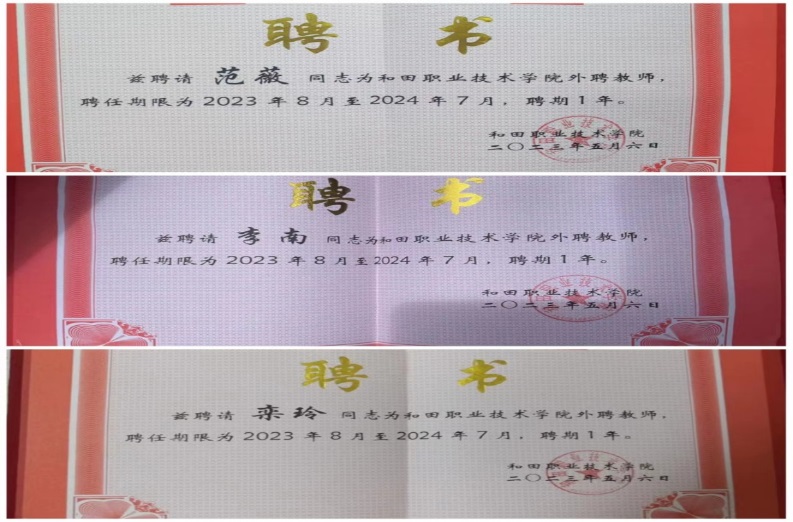 聘 书
兹聘请 范薇 同志为和田职业技术学院外聘教师，
聘任期限为2023年8月至2024年7月，聘期1年。
和田职业技术学院
二〇二三年五月六日
聘 书
兹聘请 李南 同志为和田职业技术学院外聘教师，
聘任期限为2023年8月至2024年7月，聘期1年。
和田职业技术学院
二〇二三年五月六日
聘 书
兹聘请 栾玲 同志为和田职业技术学院外聘教师，
聘任期限为2023年8月至2024年7月，聘期1年。
和田职业技术学院
二〇二三年五月六日